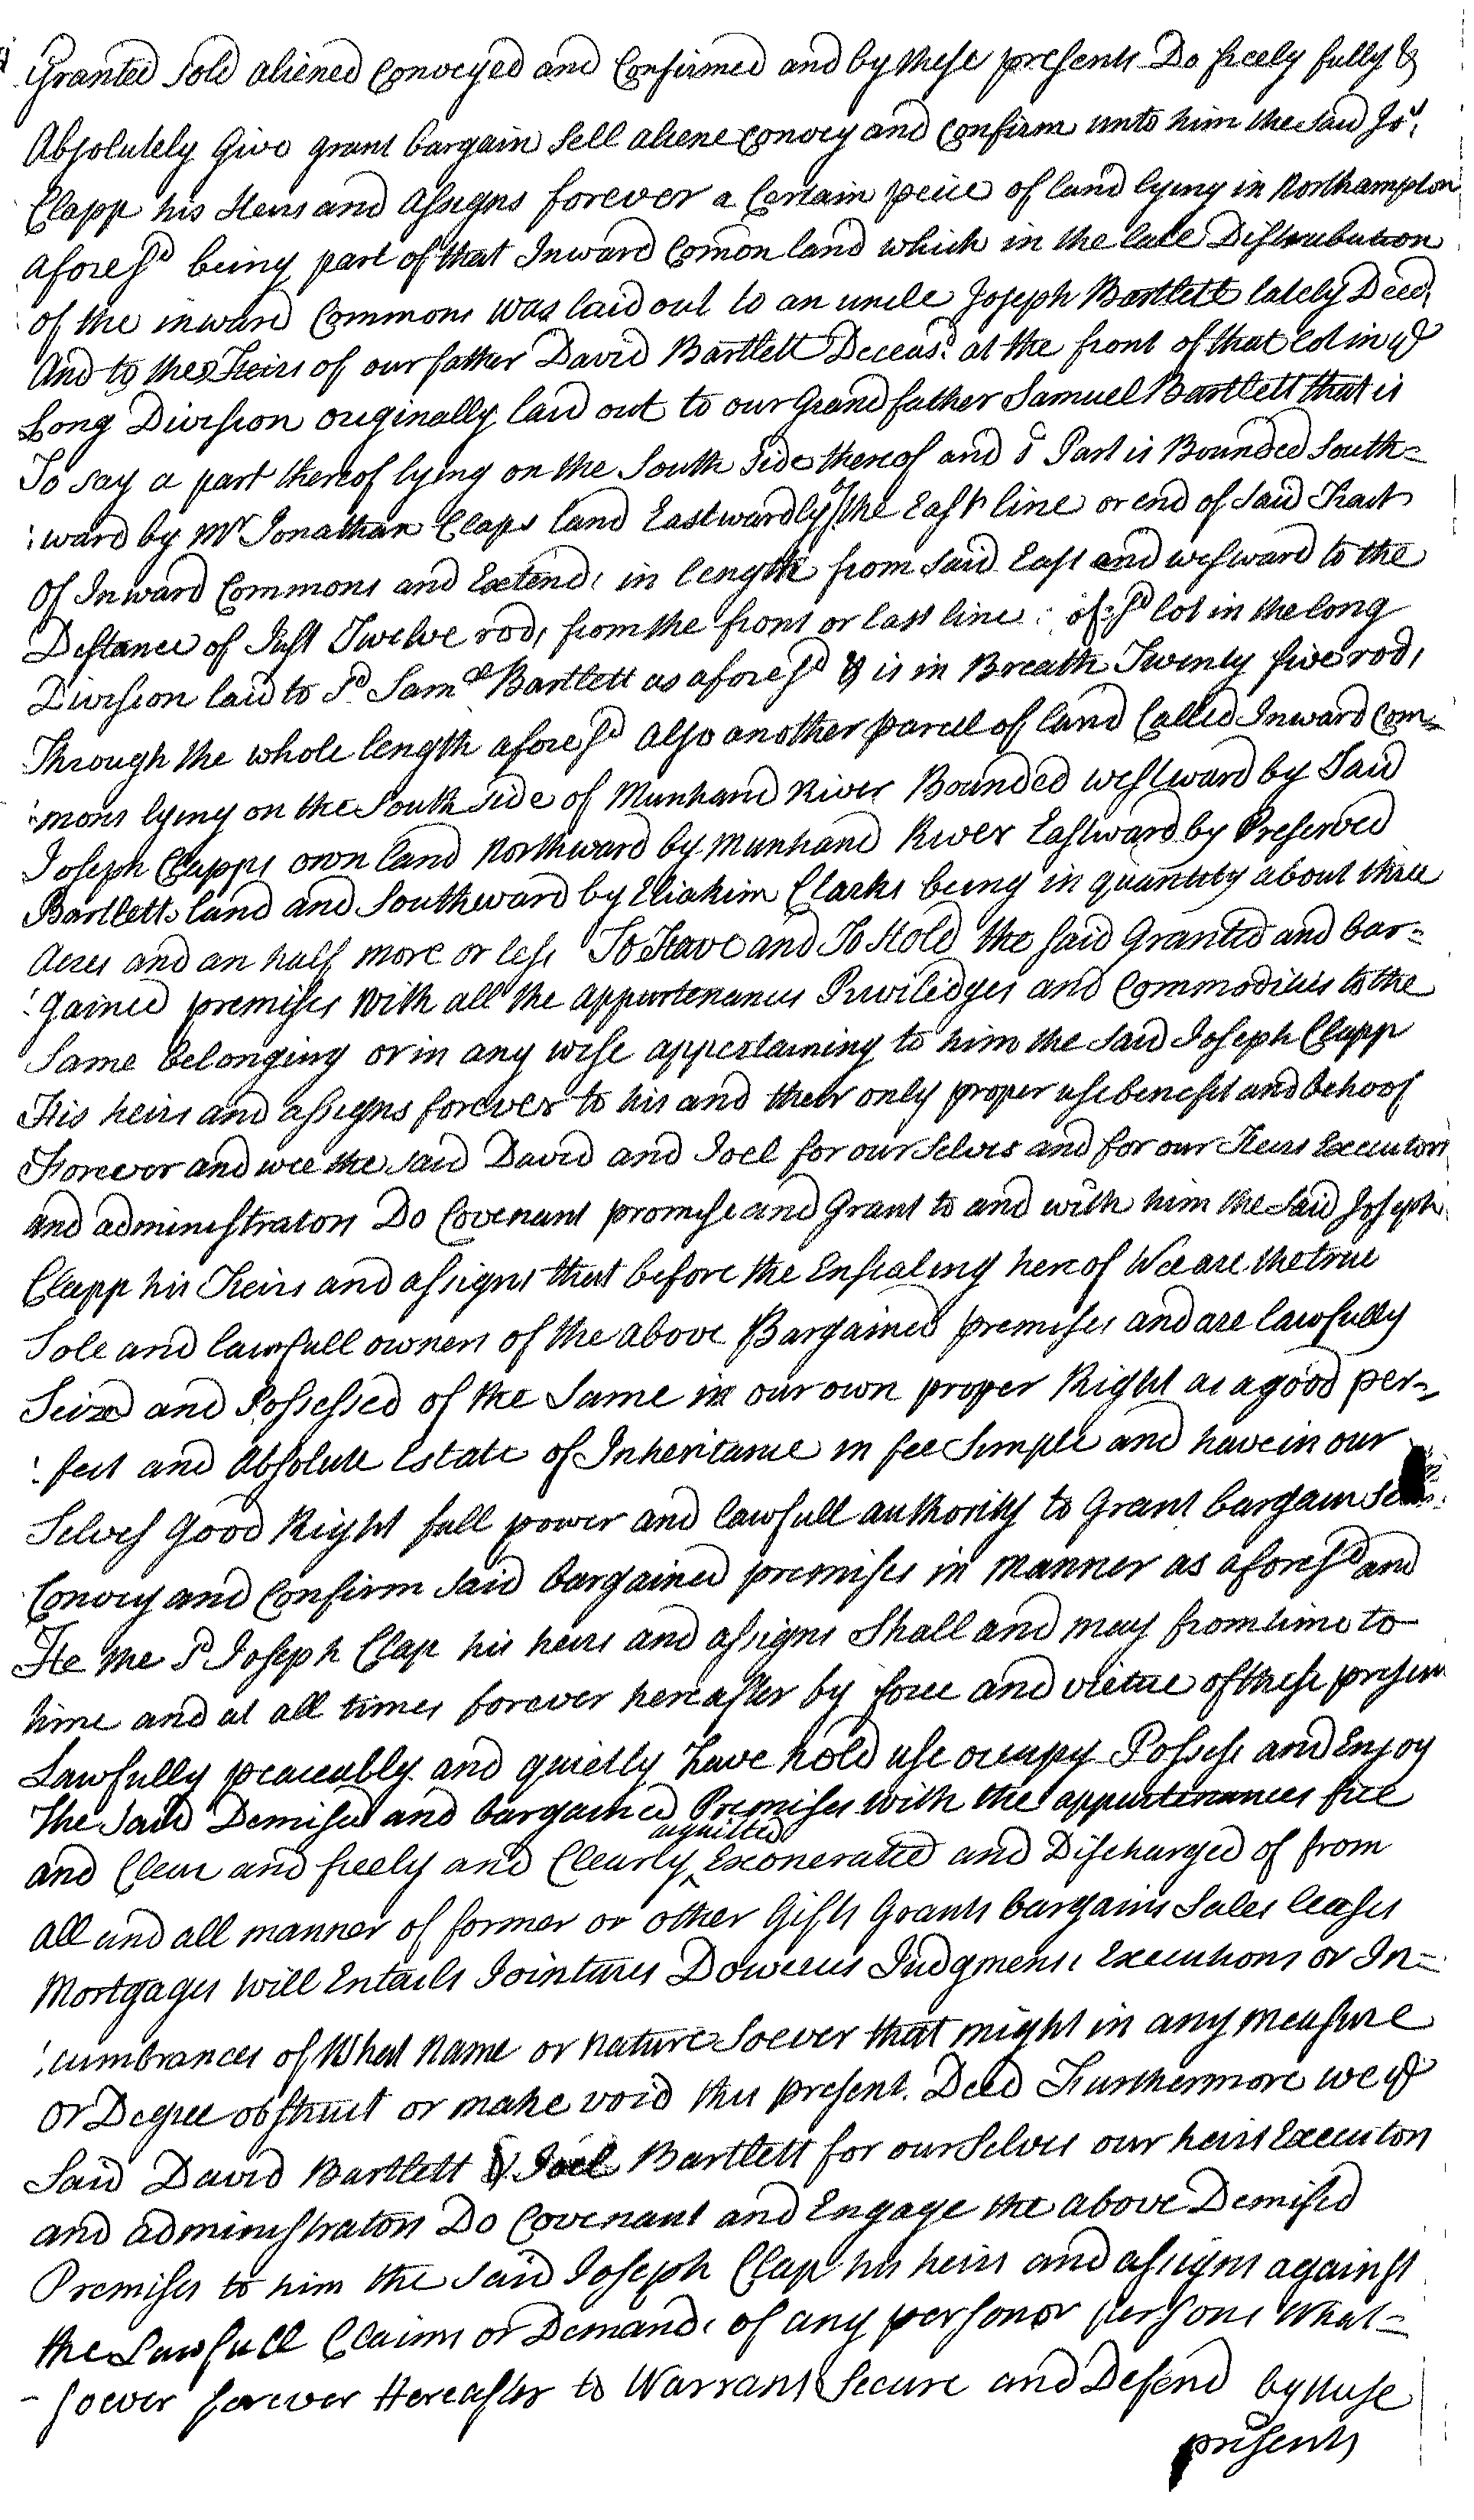 Granted Sold aliened Conveyed and Confirmed and by these presents Do freely fully &
Absolutely Give grant bargain Sell aliene Convey and Confirm unto him the Said Jos
Clapp his Heirs and Assigns forever a Certain peice of land lying in Northampton
aforesd being part of that Inward Comon land which in the late Distrubution
of the inward Commons was laid out to an uncle Joseph Bartlett lately Decd
And to the Heirs of our father David Bartlett Deceasd at the front of that lot in ye
Long Division originally laid out to our Grandfather Samuel Bartlett that is
To say a part thereof lying on the South Side thereof and sd Part is Bounded South=
:ward by Mr Jonathan Claps land Eastwardly of the East line or end of Said Tract
Of Inward Commons and Extends in length from Said East end westward to the
Distance of Just Twelve rods from the front or east line : of sd lot in the long
Division laid to Sd Samel Bartlett as aforesd & is in Breath Twenty five rods
Through the whole length aforesd also another parcel of land Called Inward Com=
:mons lying on the South Side of Munhand River Bounded westward by Said
Joseph Clapps own land Northward by Munhand River Eastward by Preserved
Bartletts land and Southward by Eliakim Clarks being in quantity about three
Acres and an half more or less To Have and To Hold the said Granted and bar=
:gained premises With all the appurtenances Priviledges and Commodities to the
Same belonging or in any wise appertaining to him the Said Joseph Clapp
His heirs and assigns forever to his and their only proper use benefit and behoof
Forever and wee the Said David and Joel for our Selves and for our Heirs Executors
and administrators Do Covenant promise and Grant to and with him the Said Joseph
Clapp his Heirs and assigns that before the Ensealing hereof Wee are the true
Sole and lawfull owners of the above Bargained premises and are lawfully
Seized and Possessed of the Same in our own proper Right as a good per=
:fect and Absolute Estate of Inheritance in fee Simple and have in our
Selves Good Right full power and lawfull authority to Grant bargain Sell
Convey and Confirm Said bargained premises in manner as aforesd and
He the Sd Joseph Clap his heirs and assigns Shall and may from time to
time and at all times forever hereafter by force and virtue of these presents
Lawfully peaceably and quietly Have hold use occupy Possess and Enjoy
The Said Demised and bargained Premises with the appurtenances free
and Clear and freely and Clearly acquitted Exonerated and Discharged of from
all and all manner of former or other Gifts Grants bargains Sales leases
Mortgages Will Entails Jointures Doweries Judgments Executions or In=
:cumbrances of What Name or Nature Soever that might in any measure
Or Degree obstruct or make void this present Deed Furthermore we ye
Said David Bartlett & Joel Bartlett for our Selves our heirs Executors
and administrators Do Covenant and Engage the above Demised
Premises to him the Said Joseph Clap his heirs and assigns against
the Lawfull Claims or Demands of any person or persons What=
-soever forever Hereafter to Warrant Secure and Defend by these
presents